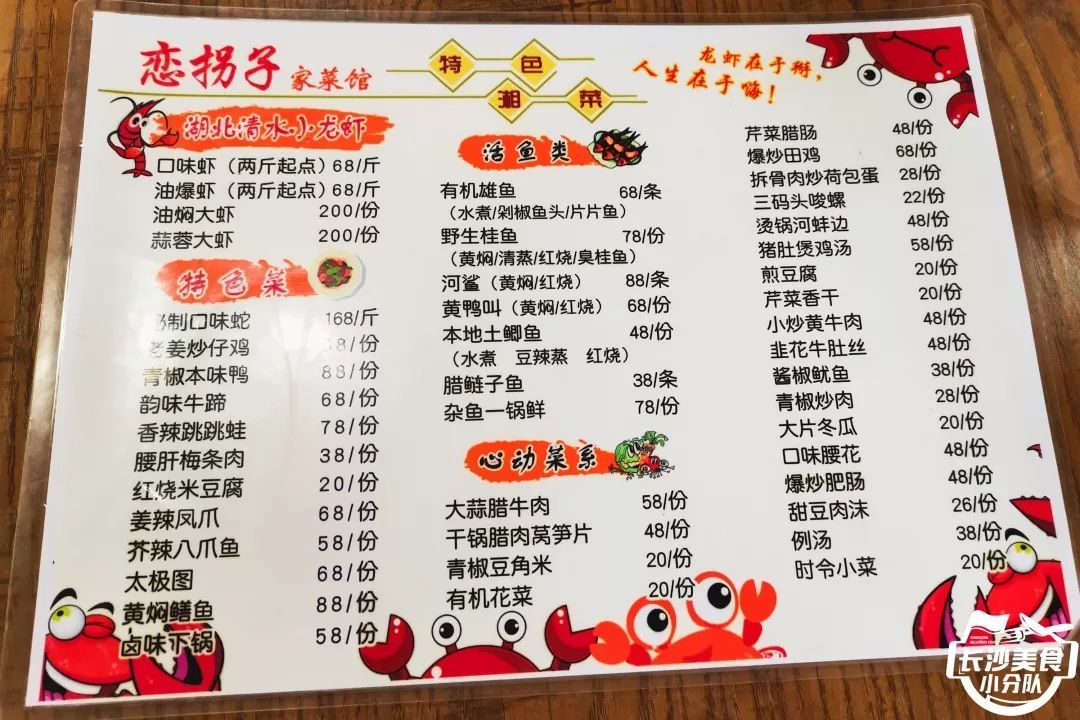 恋拐子 家菜馆
特色
湘菜
龙虾在于掰，
人生在于嗨！
湖北清水小龙虾
口味虾（两斤起点）68/斤
油爆虾（两斤起点）68/斤
油焖大虾 200/份
蒜蓉大虾 200/份
特色菜
制口味蛇 168/斤
老姜炒仔鸡 8/份
青椒本味鸭 88/份
韵味牛蹄 68/份
香辣跳跳蛙 78/份
腰肝梅条肉 38/份
红烧米豆腐 20/份
姜辣凤爪 68/份
芥辣八爪鱼 58/份
太极图 68/份
黄焖鳝鱼 88/份
卤味下锅 58/份
活鱼类
有机雄鱼 68/条
（水煮/剁椒鱼头/片片鱼）
野生桂鱼 78/份
（黄焖/清蒸/红烧/臭桂鱼）
河鲨（黄焖/红烧） 88/条
黄鸭叫（黄焖/红烧） 68/份
本地土鲫鱼 48/份
（水煮 豆辣蒸 红烧）
腊鲢子鱼 38/条
杂鱼一锅鲜 78/份
心动菜系
大蒜腊牛肉 58/份
干锅腊肉莴笋片 48/份
青椒豆角米 20/份
有机花菜 20/份
芹菜腊肠 48/份
爆炒田鸡 68/份
拆骨肉炒荷包蛋 28/份
三码头唆螺 22/份
烫锅河蚌边 48/份
猪肚煲鸡汤 58/份
煎豆腐 20/份
芹菜香干 20/份
小炒黄牛肉 48/份
韭花牛肚丝 48/份
酱椒鱿鱼 38/份
青椒炒肉 28/份
大片冬瓜 20/份
口味腰花 48/份
爆炒肥肠 48/份
甜豆肉沫 26/份
例汤 38/份
时令小菜 20/份
长沙美食
小分队